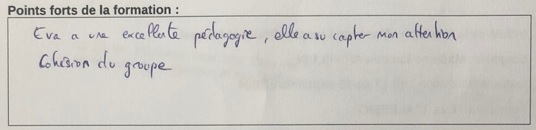 Points forts de la formation :
Eva a une excellente pédagogie, elle a su capter mon attention
Cohésion du groupe